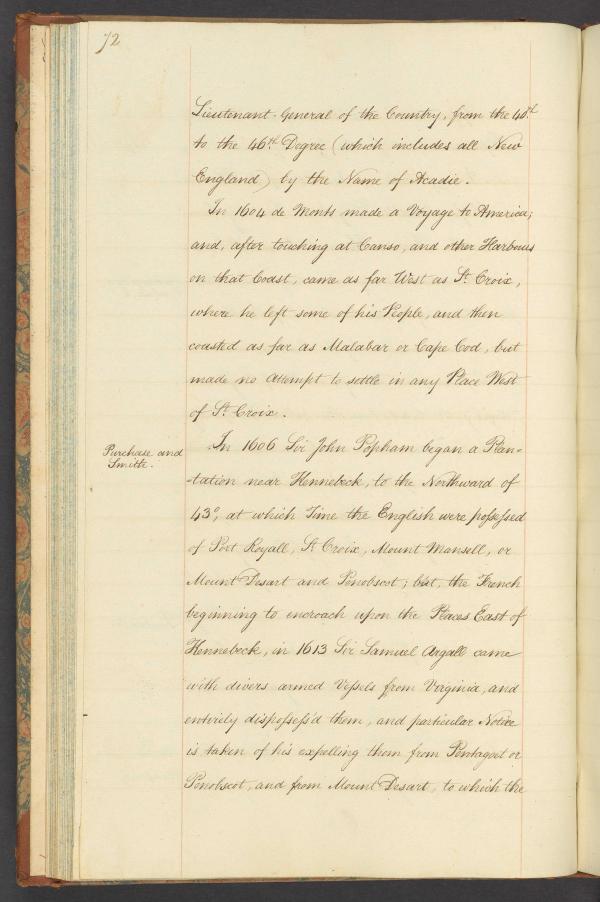 72
Lieutenant General of the Country, from the 40.th
to the 46.th Degree (which includes all New
England) by the Name of Acadie.
In 1604 de Monts made a Voyage to America;
and, after touching at Canso, and other Harbours
on that Coast, came as far West as St. Croix,
where he left some of his People, and then
coasted as far as Malabar or Cape Cod, but
made no attempt to settle in any Place West
of St. Croix.
Purchase and
Smith.
In 1606 Sir John Popham began a Plan-
-tation near Kennebeck, to the Northward of
43°, at which Time the English were possessed
of Port Royall, St. Croix, Mount Mansell, or
Mount Desart and Penobscot; but, the French
beginning to encroach upon the Places East of
Kennebeck, in 1613 Sir Samuel Argall came
with divers armed Vessels from Virginia, and
entirely dispossess'd them, and particular Notice
is taken of his expelling them from Pentagoet or
Penobscot, and from Mount Desart, to which the